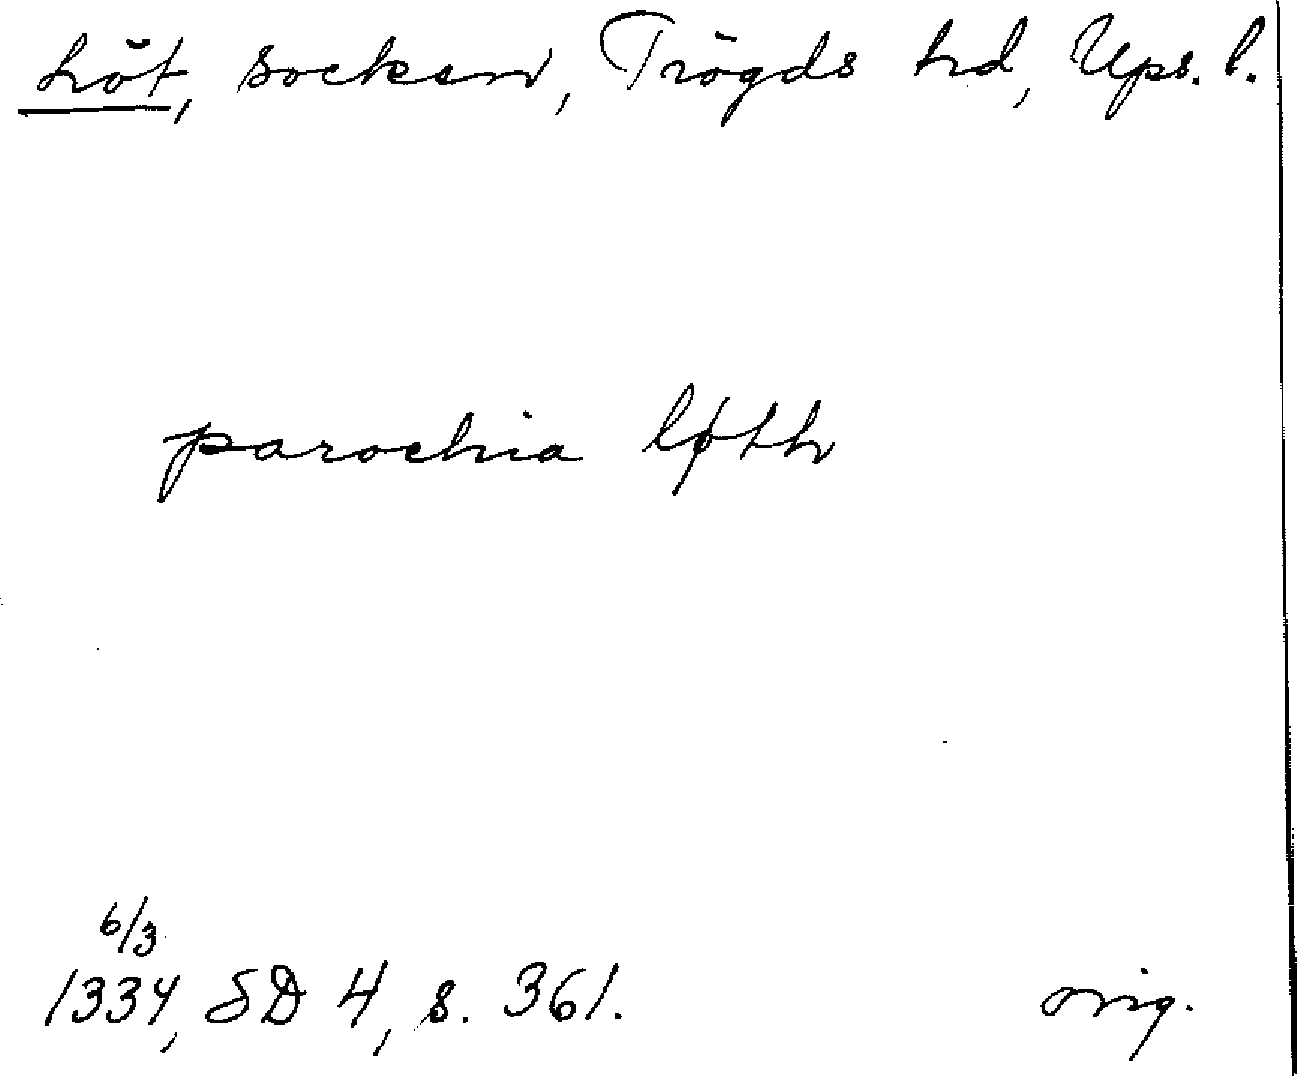 Löt, socken, Trögds hd, Ups. l.
parochia løth
6/3
1334, SD 4, s. 361. orig.